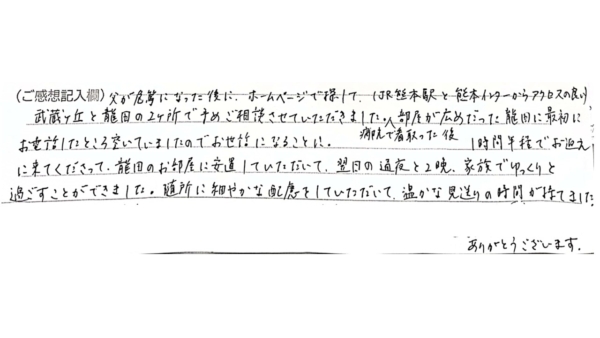 (ご感想記入欄) 父が危篤になった後に、ホームページで探して、(JR熊本駅と熊本インターからアクセスの良い)
武蔵ヶ丘と龍田の2ヶ所で予めご相談させていただきました。部屋が広めだった龍田に最初に
お世話したところ空いていましたのでお世話になることに。病院で看取った後 1時間半程でお迎え
に来てくださって、龍田のお部屋に安置していただいて、翌日の通夜と2晩、家族でゆっくりと
過ごすことができました。随所に細やかな配慮をしていただいて、温かな見送りの時間が持てました
ありがとうございます。